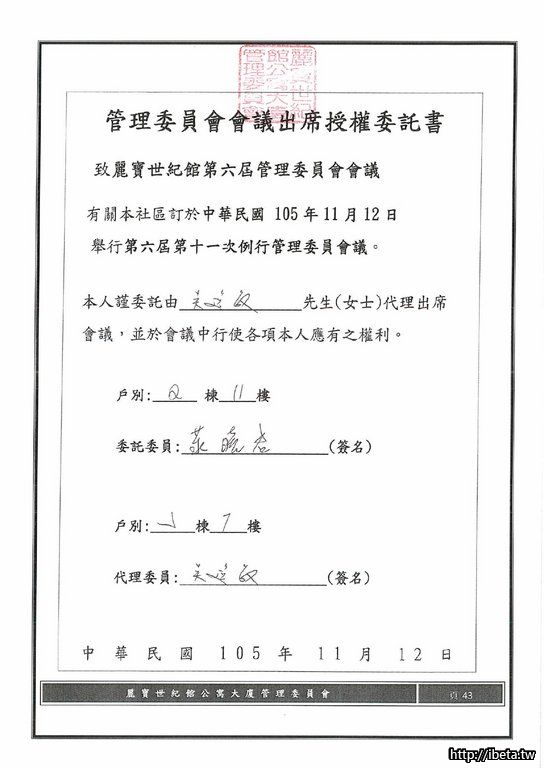 管理委員會會議出席授權委託書
致麗寶世紀館第六屆管理委員會會議
有關本社區訂於中華民國 105 年 11 月 12 日
舉行第六屆第十一次例行管理委員會議。
本人謹委託由 吳 敏 先生(女士)代理出席
會議，並於會議中行使各項本人應有之權利。
戶別: Q 棟 11 樓
委託委員: (簽名)
戶別: J 棟 7 樓
代理委員: 吳 敏 (簽名)
中華民國 105 年 11 月 12 日
麗寶世紀館公寓大廈管理委員會 頁 43
http://ibeta.tw